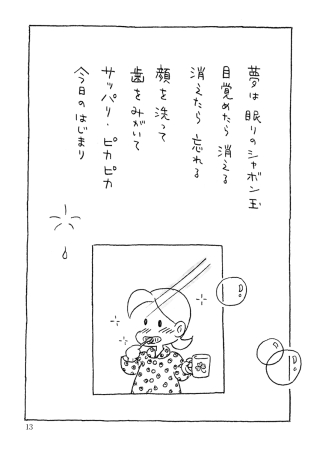 夢は 眠りのシャボン玉
目覚めたら 消える
消えたら 忘れる
顔を洗って
歯をみがいて
サッパリ・ピカピカ
今日のはじまり
13